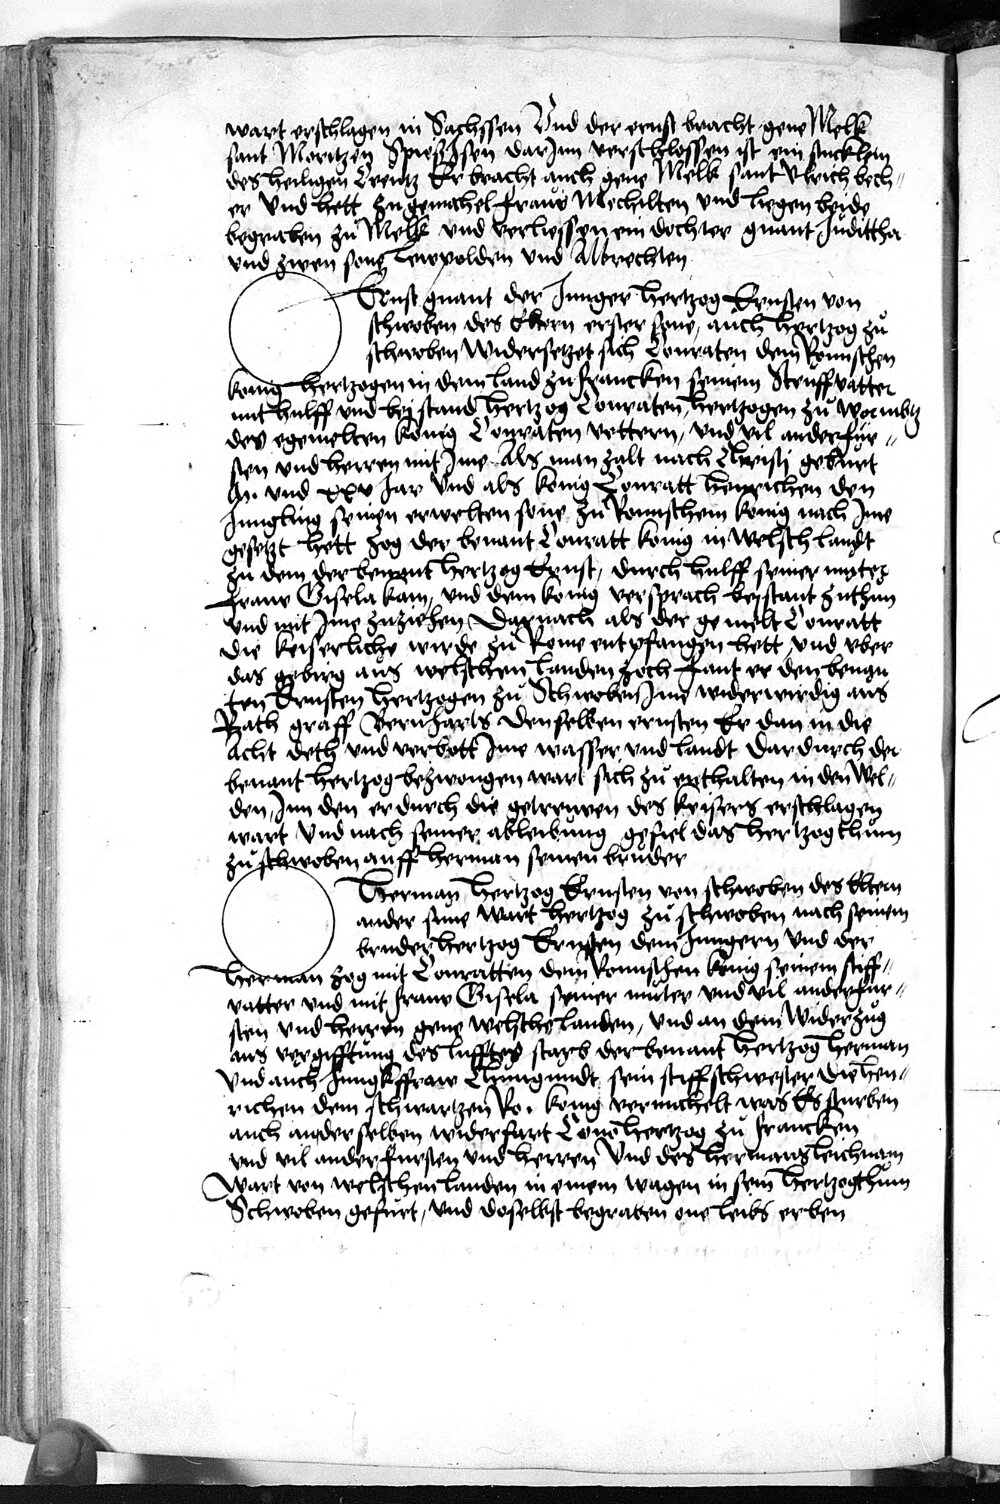 wart erschlagen in Sachssen Und der ernst bracht gene Melk
sant Moritzen Spiesz Isen dar Inn verschlossen ist ein stucklein
des heiligen Creutz Er bracht auch gene Melk sant Ulrich bech-
er Und hett zu gemahel fraw Mechilten und liegen beide
begraben zu Melk und verliessen ein dochter gnant Judittha
und zwen sone Lewpolden und Albrechten
Ernst gnant der Junger Hertzog Ernsten von
schwoben des Eltern erster sone, auch Hertzog zu
schwoben Widersetzet sich Conraten dem Romischen
konig Hertzogen in dem land zu francken seinem Steuffvatter
mit hulff und beistand Hertzog Conraten, Hertzogen zu Wormbtz
des egemelten konig Conraten vettern, und vil ander fur-
sten und herren mit Ime Als man zalt nach Christi geburt
und xxv Jar Und als konig Conratt Henrichen den
Jungling seinen erwelten sone zu Romischem konig nach Ime
gesetzt hett zog der benant Conratt konig in welsch landt
zu dem der benant Hertzog Ernst, durch hulff seiner muter
frawe Gisela kam, und dem konig versprach beistant zuthun
und mit Ime zuziehen Darnach als der gemelt Conratt
die keiserliche wirde zu Rome entpfangen hett und uber
das gebirg aus welschen landen zoch fant er den benan
ten Ernsten Hertzogen zu Schwoben Ime widerwirdig aus
Rath graff Bernharts Denselben ernsten Er dan in die
Acht deth und verbott Ime wasser und landt Dardurch der
benant Hertzog bezwongen wart sich zu enthalten in den Wel-
den, Inn den er durch die getrewen des keisers erschlagen
wart Und nach seiner ableibung gefiel das Hertzogthum
zu schwoben auff Herman seinen bruder
Herman Hertzog Ernsten von schwoben des Eltern
ander sune Wart Hertzog zu schwoben nach seinem
bruder Hertzog Ernsten dem Jungern Und der
Herman zog mit Conratten dem Romischen konig seinem stiff-
vatter und mit fraw Gisela seiner muter und vil ander fur-
sten und herren gene welsche landen, und an dem Widerzug
aus vergifftung des lufftes starb der benant Hertzog Herman
Und auch Jungkffraw Chunigundt sein stiffschwester die Hen-
richen dem schwartzen Ro. konig vermehelt was Es sturben
auch an der selben widerfart Cono Hertzog zu francken
und vil ander fursten und herren Und des Hermans leichnam
Wart von welschen landen in einem wagen in sein Hertzogthum
Schwoben gefurt, und doselbst begraben one leibs erben